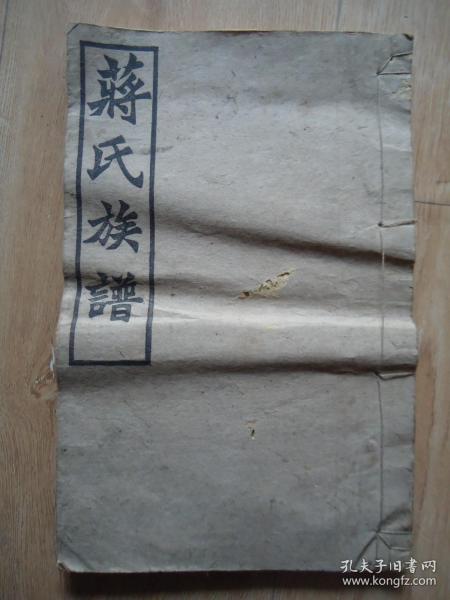 蔣氏族譜
孔夫子旧书网
www.kongfz.com